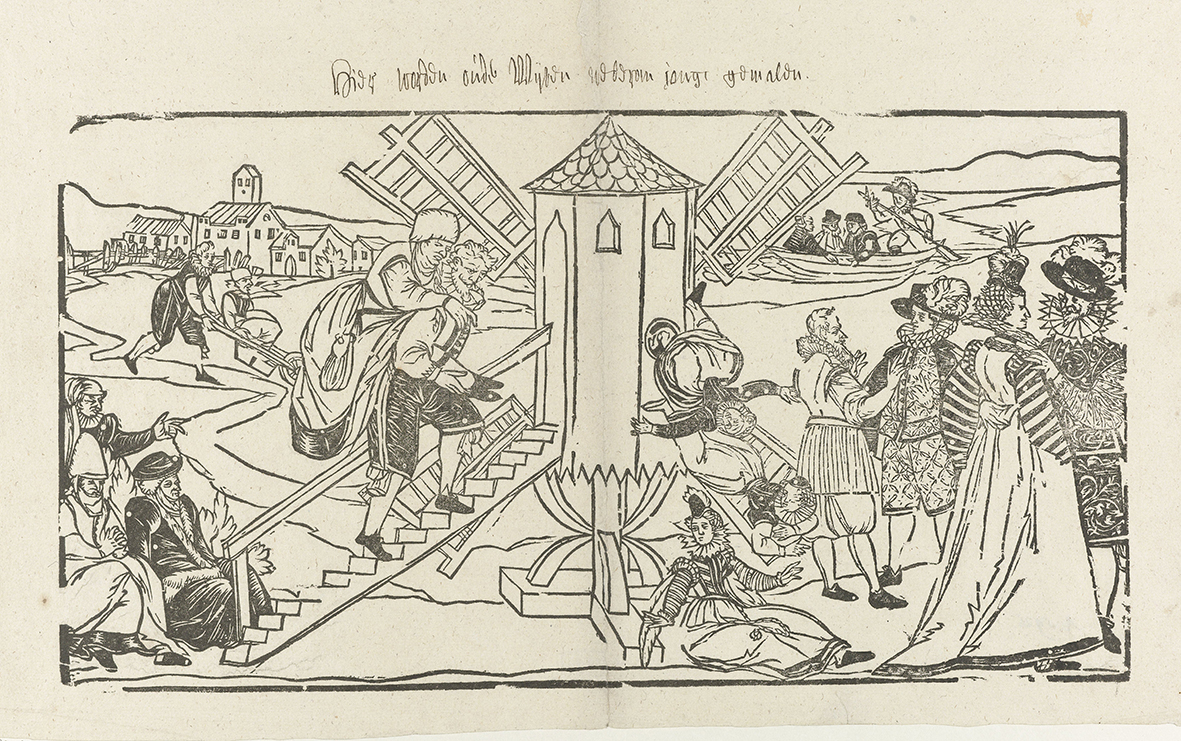 Hier worden oüde Wijven wederom jonge gemalen.